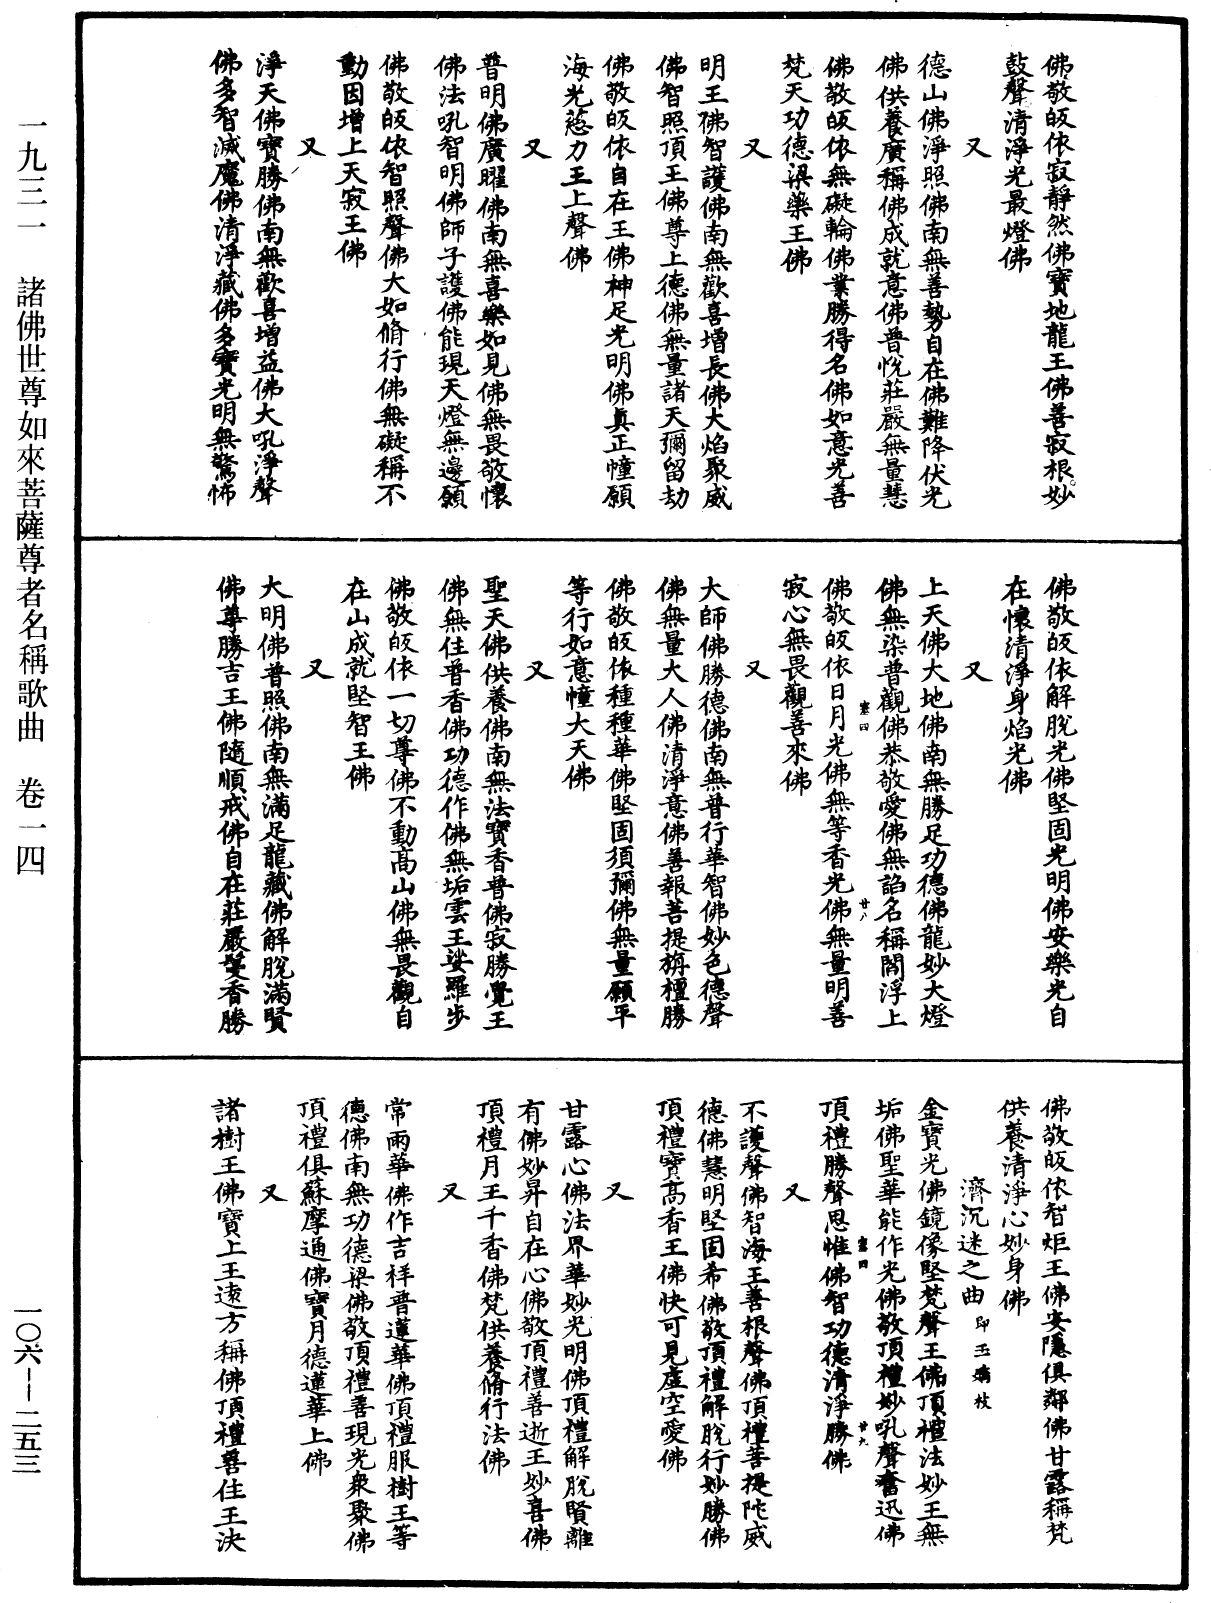 佛敬皈依寂靜然佛寶地龍王佛善寂根妙
鼓聲清淨光最燈佛
又
德山佛淨照佛南無善勢自在佛難降伏光
佛供養廣稱佛成就意佛普悅莊嚴無量慧
佛敬皈依無礙輪佛業勝得名佛如意光善
梵天功德梁樂王佛
又
明王佛智護佛南無歡喜增長佛大焰聚威
佛智照頂王佛尊上德佛無量諸天彌留劫
佛敬皈依自在王佛神足光明佛真正幢願
海光慈力王上聲佛
又
普明佛廣曜佛南無喜樂如見佛無畏敬懷
佛法吼智明佛師子護佛能現天燈無邊願
佛敬皈依智照聲佛大如脩行佛無礙稱不
動因增上天寂王佛
又
淨天佛寶勝佛南無歡喜增益佛大吼淨聲
佛多智滅魔佛清淨藏佛多寶光明無驚怖
佛敬皈依解脫光佛堅固光明佛安樂光自
在懷清淨身焰光佛
又
上天佛大地佛南無勝足功德佛龍妙大燈
佛無染普觀佛恭敬愛佛無諂名稱閻浮上
佛敬皈依日月光佛無等香光佛無量明善
寂心無畏觀善來佛
又
大師佛勝德佛南無普行華智佛妙色德聲
佛無量大人佛清淨意佛善報菩提旃檀勝
佛敬皈依種種華佛堅固須彌佛無量願平
等行如意幢大天佛
又
聖天佛供養佛南無法寶香普佛寂勝覺王
佛無住普香佛功德作佛無垢雲王娑羅步
佛敬皈依一切尊佛不動高山佛無畏觀自
在山成就堅智王佛
又
大明佛普照佛南無滿足龍藏佛解脫滿賢
佛尊勝吉王佛隨順戒佛自在莊嚴髮香勝
佛敬皈依智炬王佛安隱俱鄰佛甘露稱梵
供養清淨心妙身佛
濟沉迷之曲 即玉嬌枝
金寶光佛鏡像堅梵聲王佛頂禮法妙王無
垢佛聖華能作光佛敬頂禮妙吼聲奮迅佛
頂禮勝聲思惟佛智功德清淨勝佛
又
不護聲佛智海王善根聲佛頂禮菩提陀威
德佛慧明堅固希佛敬頂禮解脫行妙勝佛
頂禮寶高香王佛快可見虛空愛佛
又
甘露心佛法界華妙光明佛頂禮解脫賢離
有佛妙昇自在心佛敬頂禮善逝王妙喜佛
頂禮月王千香佛梵供養脩行法佛
又
常雨華佛作吉祥普蓮華佛頂禮服樹王等
德佛南無功德梁佛敬頂禮善現光衆聚佛
頂禮俱蘇摩通佛寶月德蓮華上佛
又
諸樹王佛寶上王遠方稱佛頂禮善住王決
塞四
廿八
塞四
廿九
一九三一 諸佛世尊如來菩薩尊者名稱歌曲 卷一四
一〇六——二五三